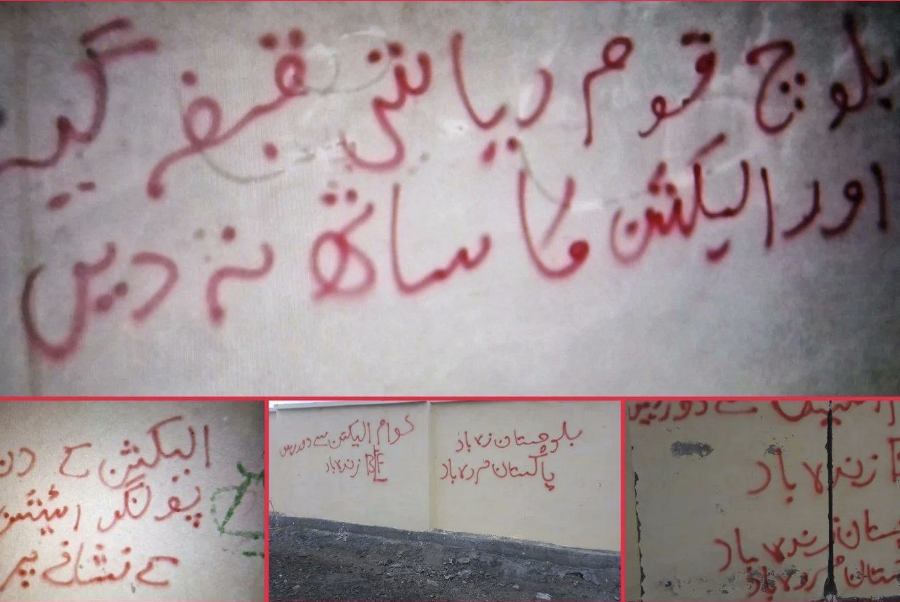 بلوچ قوم ریاستی قبضہ گیر
اور الیکشن کا ساتھ نہ دیں
الیکشن کے دن
پولنگ اسٹیشن
کے نشانے پر
عوام الیکشن سے دور رہیں
زندہ باد
بلوچستان زندہ باد
پاکستان مردہ باد
سے دور رہیں
زندہ باد
ستان زندہ باد
ستان مردہ باد